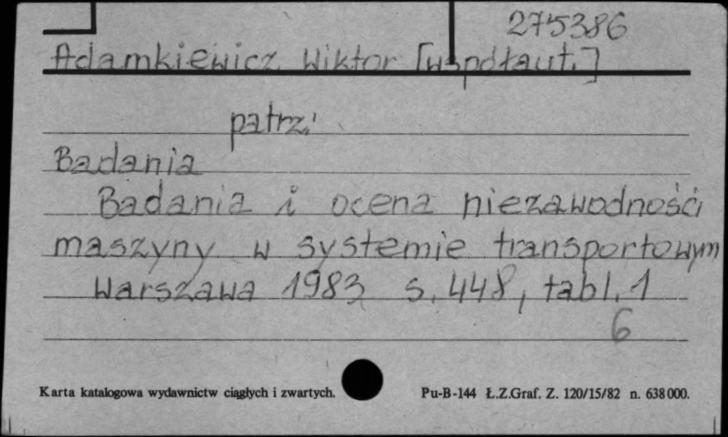 275386
Adamkiewicz Wiktor [współaut.]
patrz:
Badania
Badania i ocena niezawodności
maszyny w systemie transportowym
Warszawa 1983 s. 448, tabl. 1
6
Karta katalogowa wydawnictw ciągłych i zwartych. Pu-B-144 Ł.Z.Graf. Z. 120/15/82 n. 638 000.